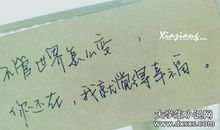 Xinjiang
不管世界怎么变,
你还在,我就觉得幸福。
大学生小说网
www.dxsxs.com